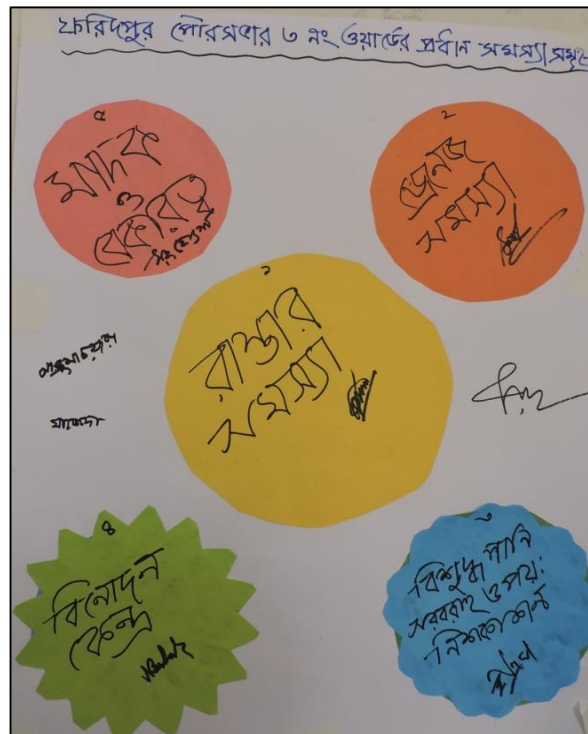 ফরিদপুর পৌরসভার ৩ নং ওয়ার্ডের প্রধান সমস্যা সমূহ
৫
মাদক
ও
বেকারত্ব
২
ড্রেনেজ
সমস্যা
১
রাস্তার
সমস্যা
৪
বিনোদন
কেন্দ্র
৩
বিশুদ্ধ পানি
সরবরাহ ও পয়ঃ
নিষ্কাশন